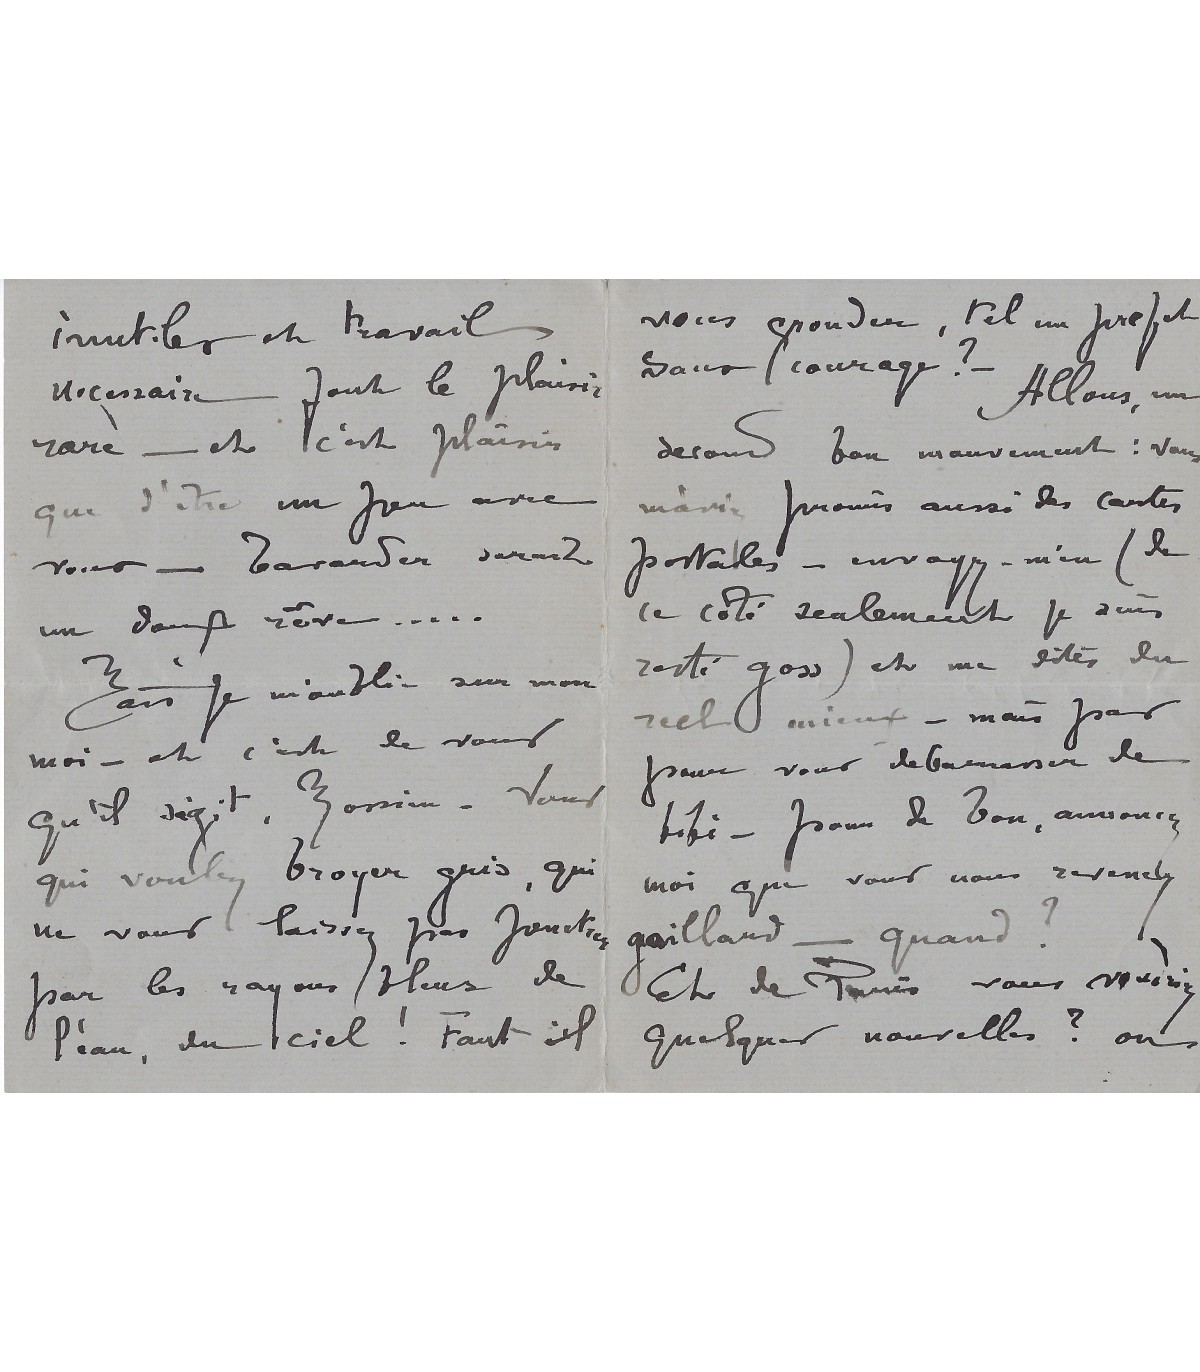 inutiles et travail
necessaire font le plaisir
rare — et c'est plaisir
que d'être un peu avec
vous — bavarder durant
un doux rêve.....
Mais je m'oublie sur mon
moi — et c'est de vous
qu'il s'agit, . Vous
qui voulez broyer gris, qui
ne vous laissez pas
par les rayons bleus de
l'eau, du ciel ! Faut il
vous gronder, tel un prefet
sans courage ? —
Allons, un
second bon mouvement : vous
m'aviez promis aussi des cartes
postales — envoyez-m'en (de
ce côté seulement je suis
resté goss) et me dites du
reel mieux — mais pas
pour vous debarrasser de
bibi — pour de bon, annoncez
moi que vous nous revenez
gaillard — quand ?
Et de Paris vous
quelques nouvelles ? on